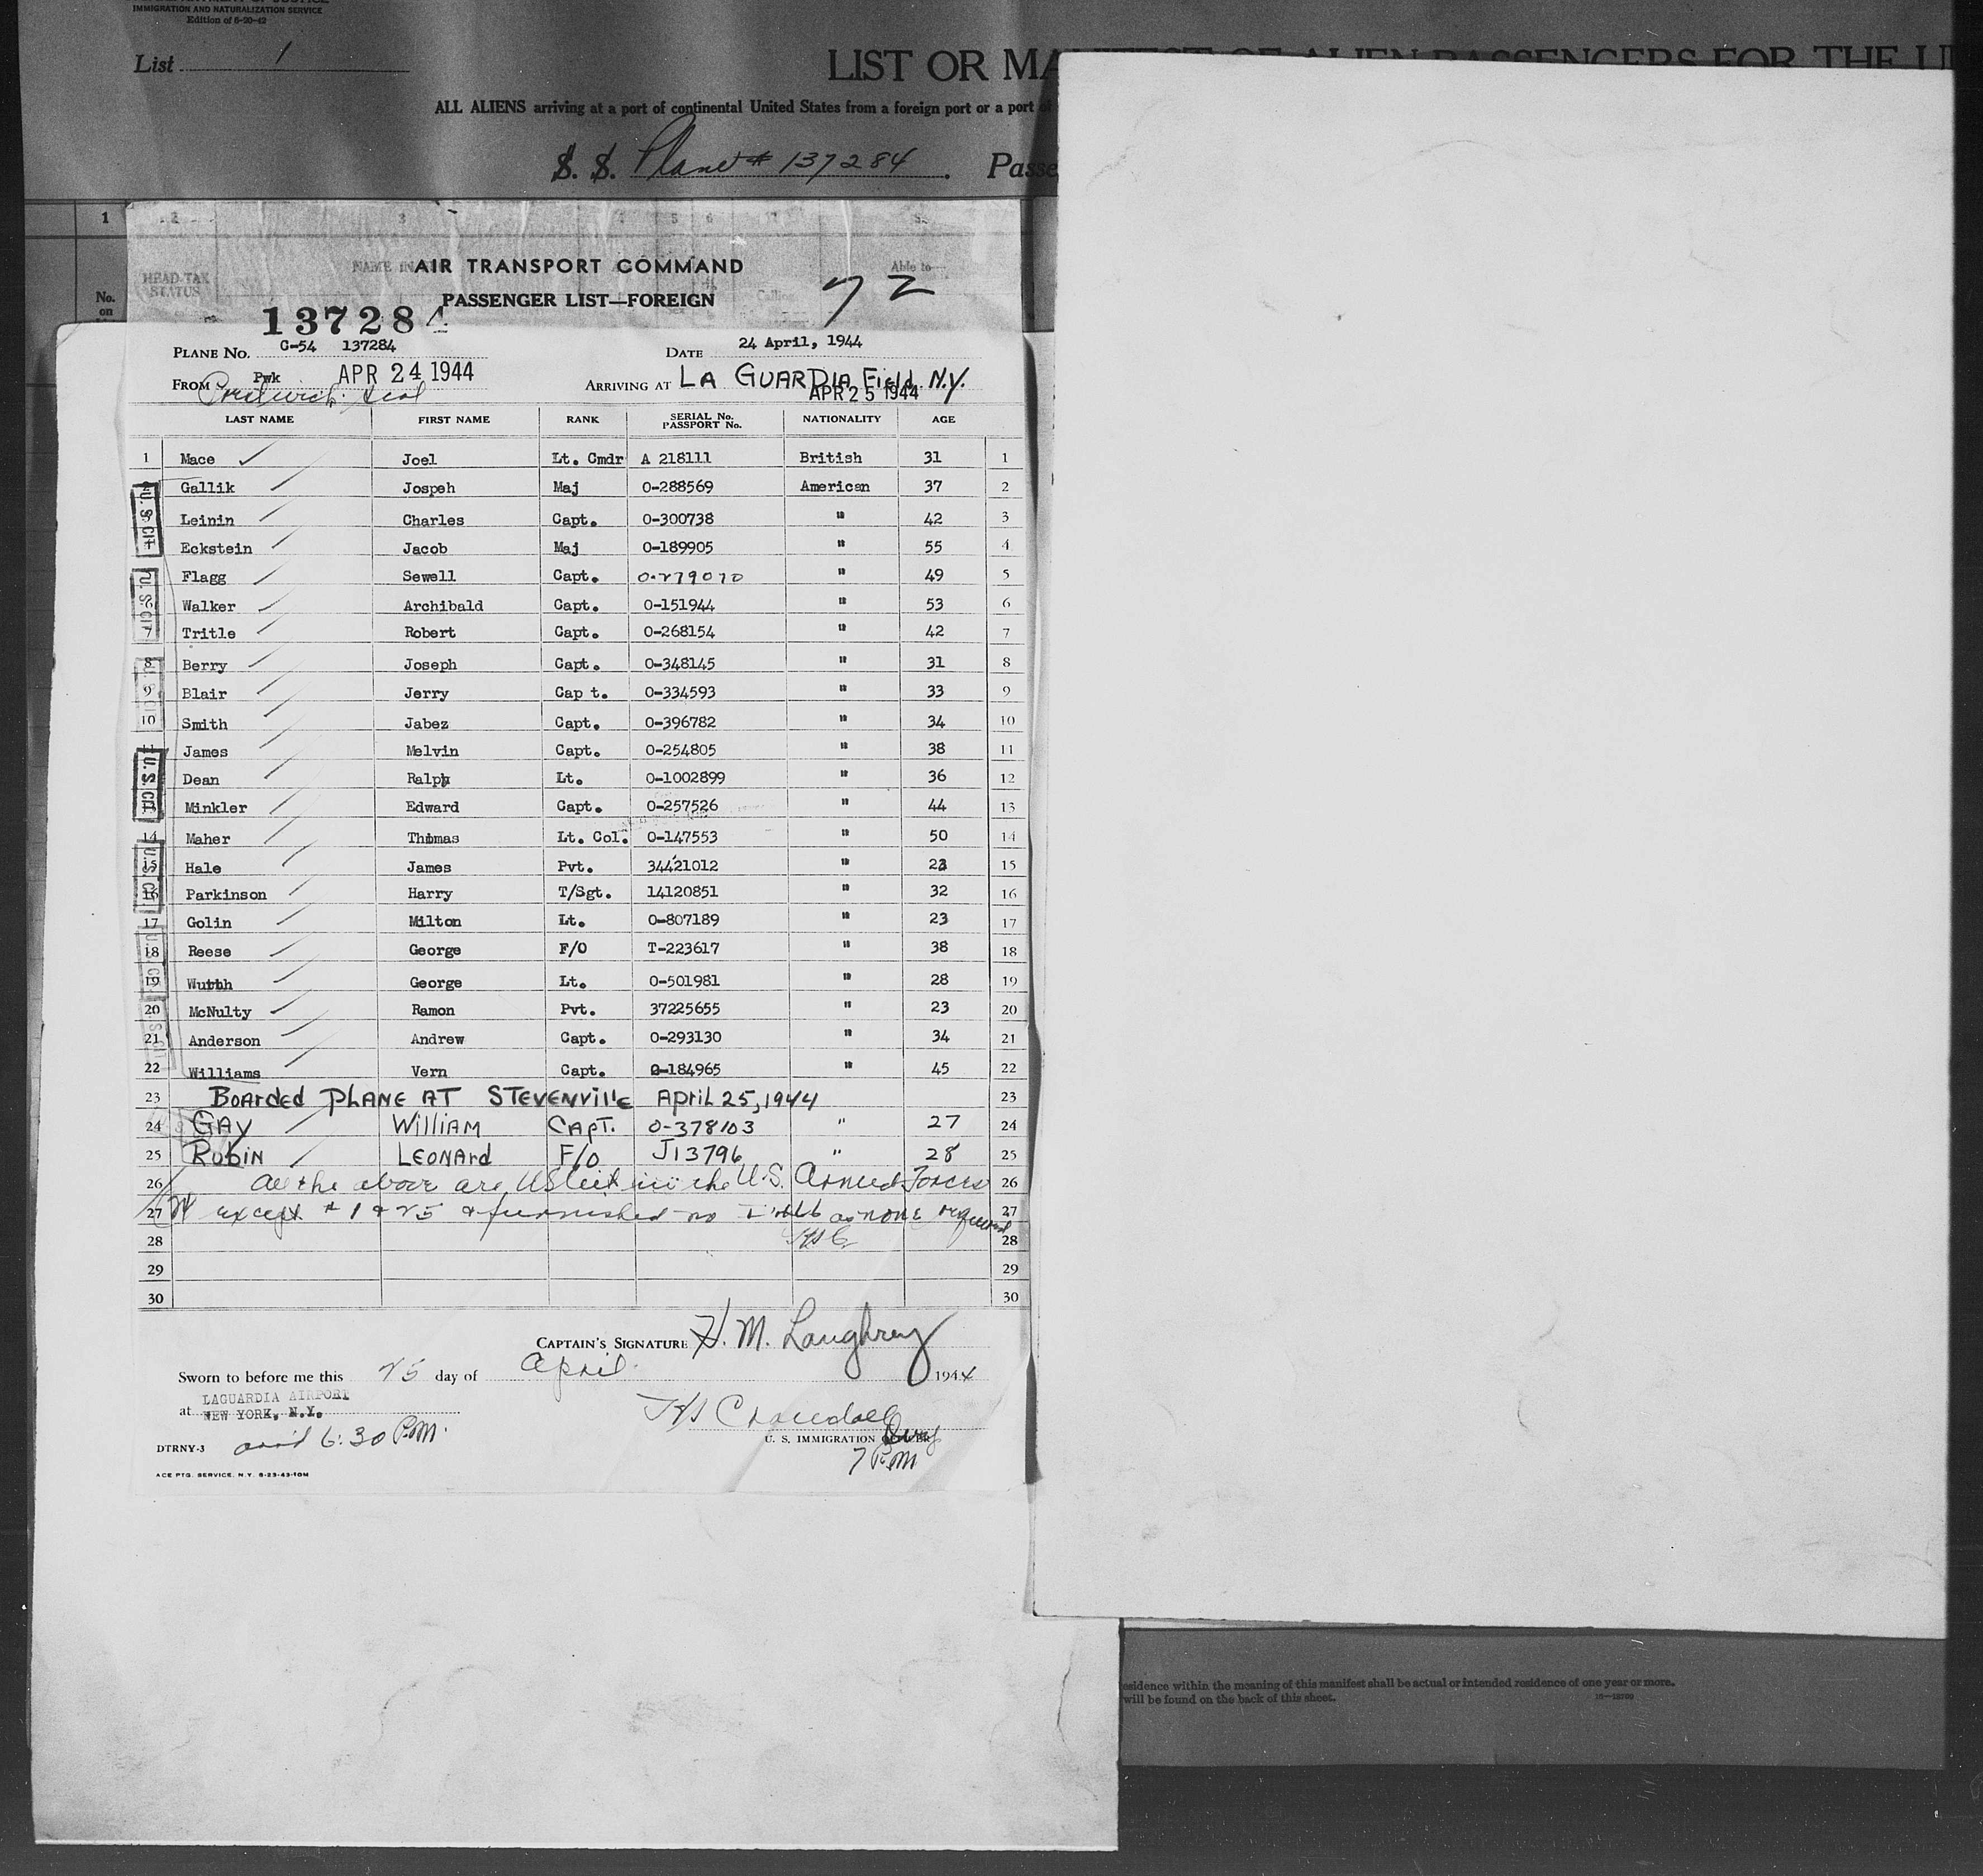 IMMIGRATION AND NATURALIZATION SERVICE
Edition of 6-20-42
List 1
LIST OR MANIFEST OF ALIEN PASSENGERS FOR THE
ALL ALIENS arriving at a port of continental United States from a foreign port or a port of
S. S. Plane # 137284. Passe
1 2 3 4 5 6
HEAD-TAX STATUS
NAME IN
Able to
No. on
AIR TRANSPORT COMMAND
72
PASSENGER LIST—FOREIGN
137284
PLANE No. C-54 137284 DATE 24 April, 1944
FROM Pwk APR 24 1944 ARRIVING AT LA GUARDIA Field N.Y.
Prestwick Scot APR 25 1944
LAST NAME FIRST NAME RANK SERIAL No. PASSPORT No. NATIONALITY AGE
1 Mace Joel Lt. Cmdr A 218111 British 31 1
Gallik Jospeh Maj O-288569 American 37 2
Leinin Charles Capt. O-300738 " 42 3
Eckstein Jacob Maj O-189905 " 55 4
Flagg Sewell Capt. O-279070 " 49 5
Walker Archibald Capt. O-151944 " 53 6
7 Tritle Robert Capt. O-268154 " 42 7
8 Berry Joseph Capt. O-348145 " 31 8
9 Blair Jerry Cap t. O-334593 " 33 9
10 Smith Jabez Capt. O-396782 " 34 10
11 James Melvin Capt. O-254805 " 38 11
Dean Ralph Lt. O-1002899 " 36 12
Minkler Edward Capt. O-257526 " 44 13
14 Maher Thomas Lt. Col. O-147553 " 50 14
15 Hale James Pvt. 34421012 " 23 15
16 Parkinson Harry T/Sgt. 14120851 " 32 16
17 Golin Milton Lt. O-807189 " 23 17
18 Reese George F/O T-223617 " 38 18
19 Wurth George Lt. O-501981 " 28 19
20 McNulty Ramon Pvt. 37225655 " 23 20
21 Anderson Andrew Capt. O-293130 " 34 21
22 Williams Vern Capt. O-184965 " 45 22
23 Boarded PLANE AT STEVENVillE April 25, 1944 23
24 GAY William CAPT. O-378103 " 27 24
25 RUBIN LEONARd F/O J13796 " 28 25
26 All the above are US Cit in the U.S. Armed Forces 26
27 except # 1 & 25 & furnished no I 466 as none required 27
28 HSC 28
29 29
30 30
U. S. CIT
U. S. CIT
U. S. CIT
U. S. CIT
CAPTAIN'S SIGNATURE H. M. Laughrey
Sworn to before me this 25 day of April 1944
at LAGUARDIA AIRPORT
NEW YORK, N.Y.
HS Crandall
U. S. IMMIGRATION OFFICER
DTRNY-3 arr'd 6:30 P.M.
7 P.M
ACE PTG. SERVICE, N.Y. 6-23-43-10M
esidence within the meaning of this manifest shall be actual or intended residence of one year or more.
will be found on the back of this sheet.